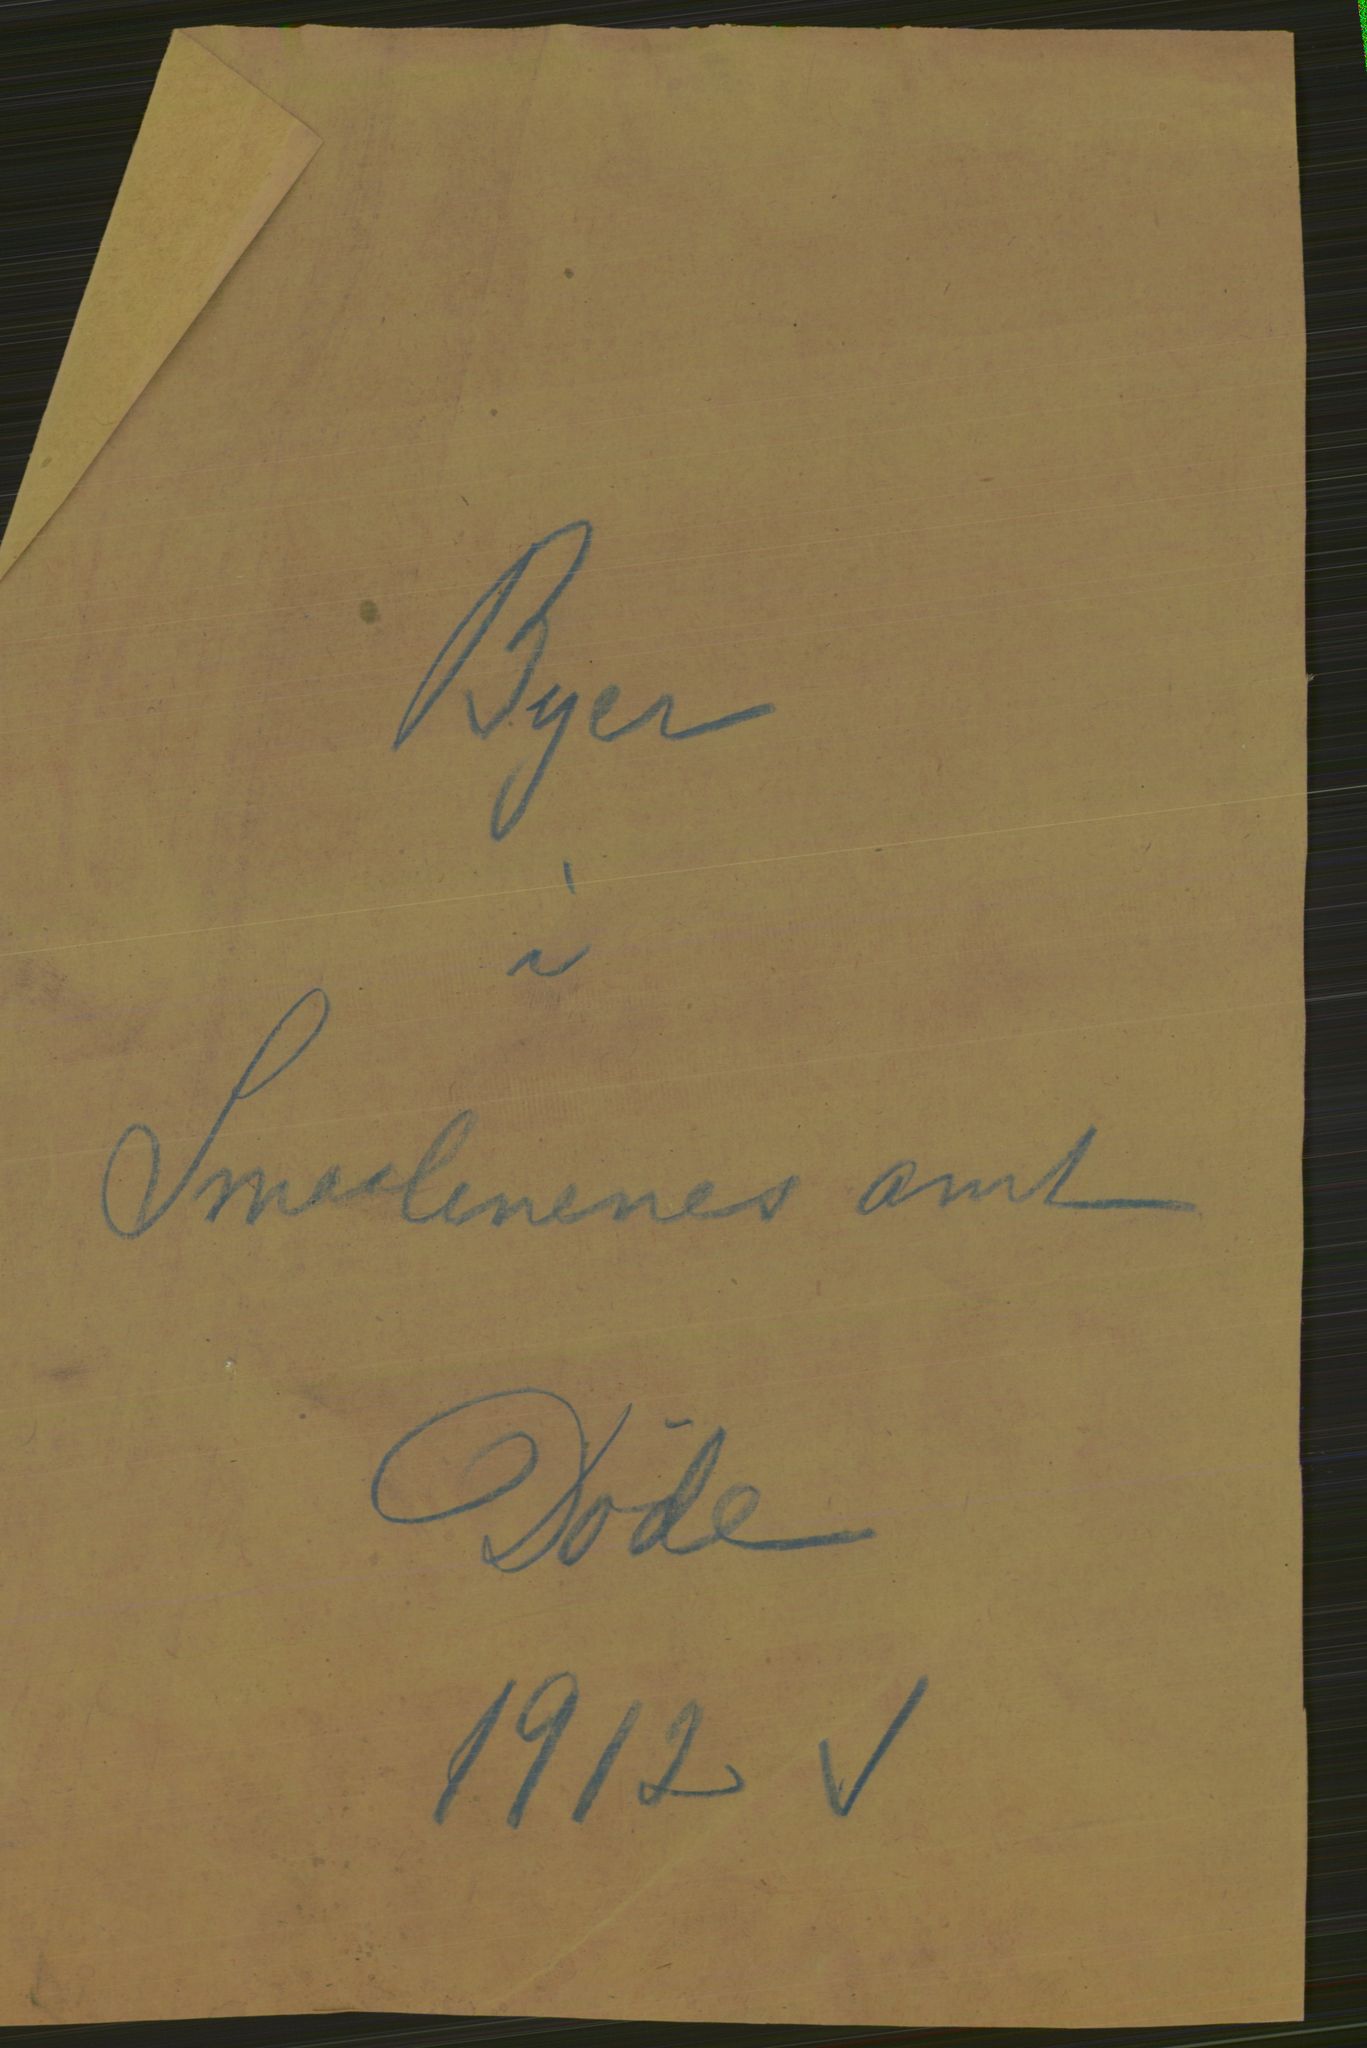 Byer
i
Smaalenenes amt
Döde
1912 ✓